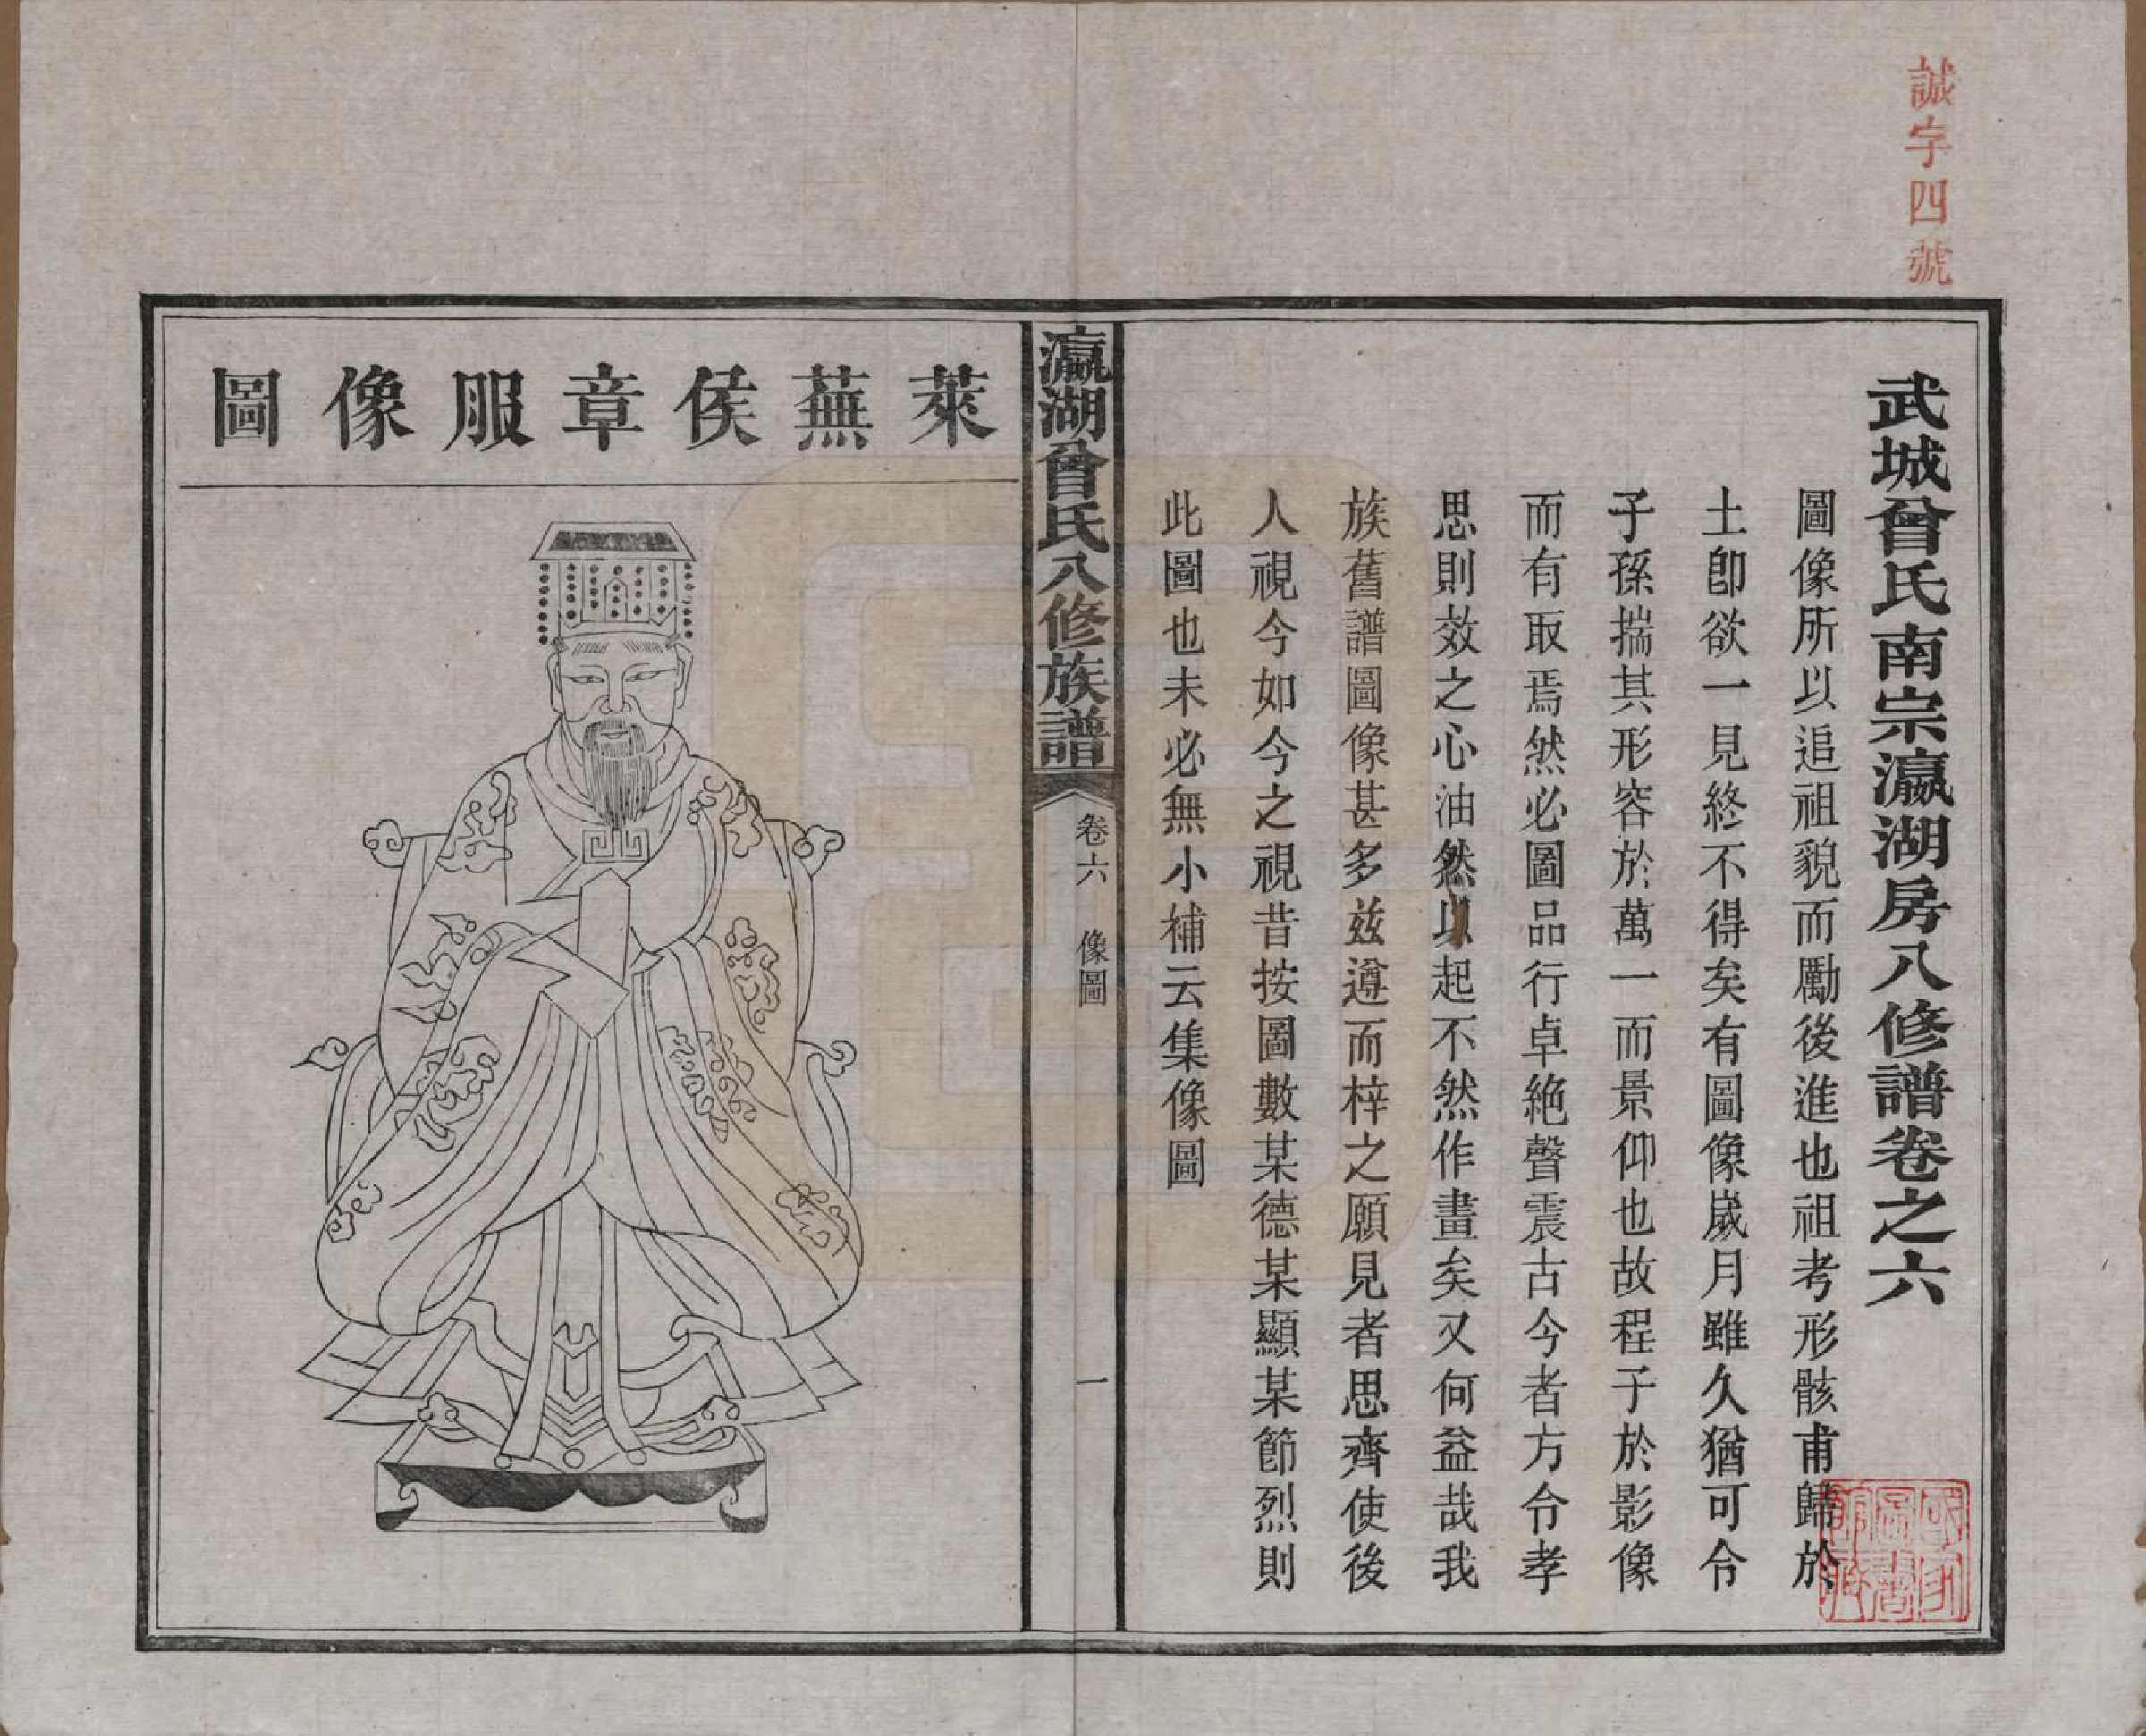 誠字四號
武城曾氏南宗瀛湖房八修譜卷之六
圖像所以追祖貌而勵後進也祖考形骸甫歸於
土卽欲一見終不得矣有圖像嵗月雖久猶可令
子孫揣其形容於萬一而景仰也故程子於影像
而有取焉然必圖品行卓絶聲震古今者方令孝
思則效之心油然以起不然作畫矣又何益哉我
族舊譜圖像甚多兹遵而梓之願見者思齊使後
人視今如今之視昔按圖數某德某顯某節烈則
此圖也未必無小補云集像圖
國家圖書館藏
瀛湖曾氏八修族譜
卷六 像圖
一
萊蕪侯章服像圖